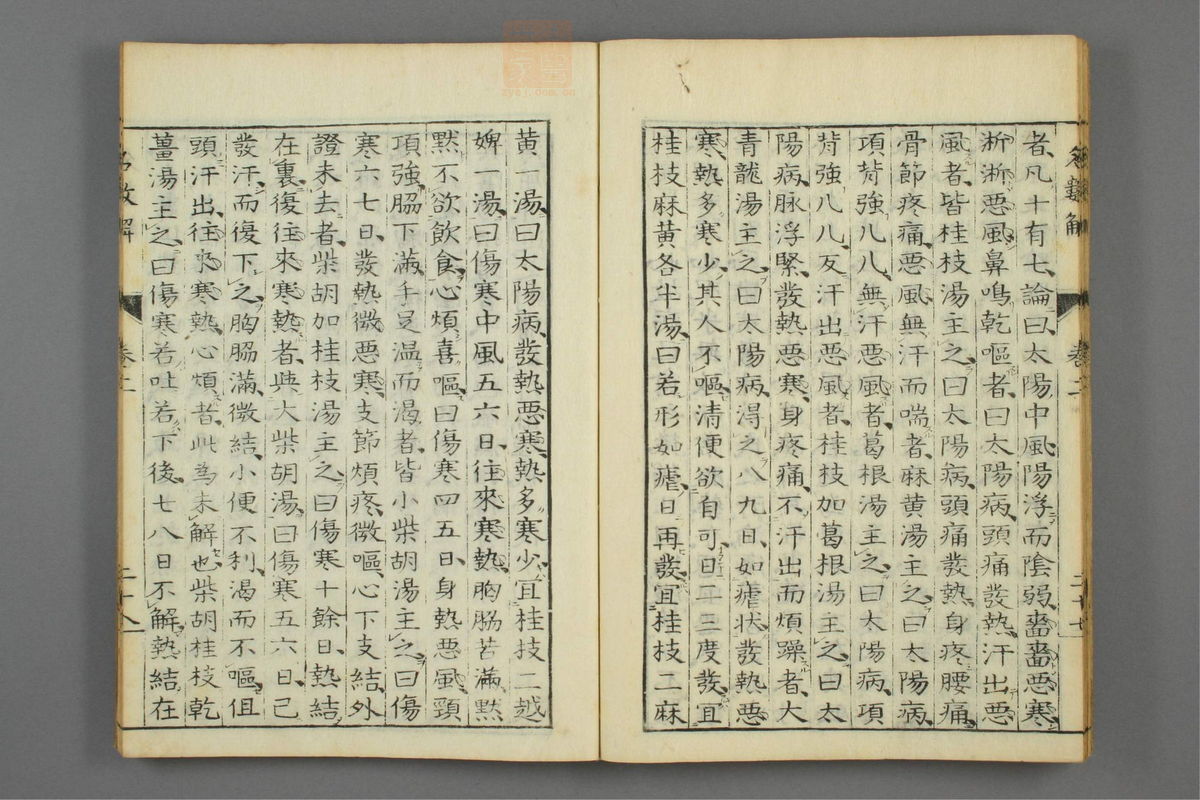 者凡十有七論曰太陽中風陽浮而陰弱嗇嗇悪寒
淅淅悪風鼻鳴乾嘔者曰太陽病頭痛發熱汗出悪
風者皆桂枝湯主之曰太陽病頭痛發熱身疼腰痛
骨節疼痛悪風無汗而喘者麻黄湯主之曰太陽病
項背強几几無汗悪風者葛根湯主之曰太陽病項
背強几几反汗出悪風者桂枝加葛根湯主之曰太
陽病脉浮緊發熱悪寒身疼痛不汗出而煩躁者大
青龍湯主之曰太陽病得之八九日如瘧状發熱悪
寒熱多寒少其人不嘔清便欲自可日二三度發宜
桂枝麻黄各半湯曰若形如瘧日再發宜桂枝二麻
黄一湯曰太陽病發熱悪寒熱多寒少宜桂枝二越
婢一湯曰傷寒中風五六日往來寒熱胸脇苦滿黙
黙不欲飲食心煩喜嘔曰傷寒四五日身熱悪風頸
項強脇下滿手足温而渇者皆小柴胡湯主之曰傷
寒六七日發熱微悪寒支節煩疼微嘔心下支結外
證未去者柴胡加桂枝湯主之曰傷寒十餘日熱結
在裏復往來寒熱者與大柴胡湯曰傷寒五六日已
發汗而復下之胸脇滿微結小便不利渇而不嘔但
頭汗出往來寒熱心煩者此為未解也柴胡桂枝乾
薑湯主之曰傷寒若吐若下後七八日不解熱結在
卷二
二十七
名数解
卷二
二十八